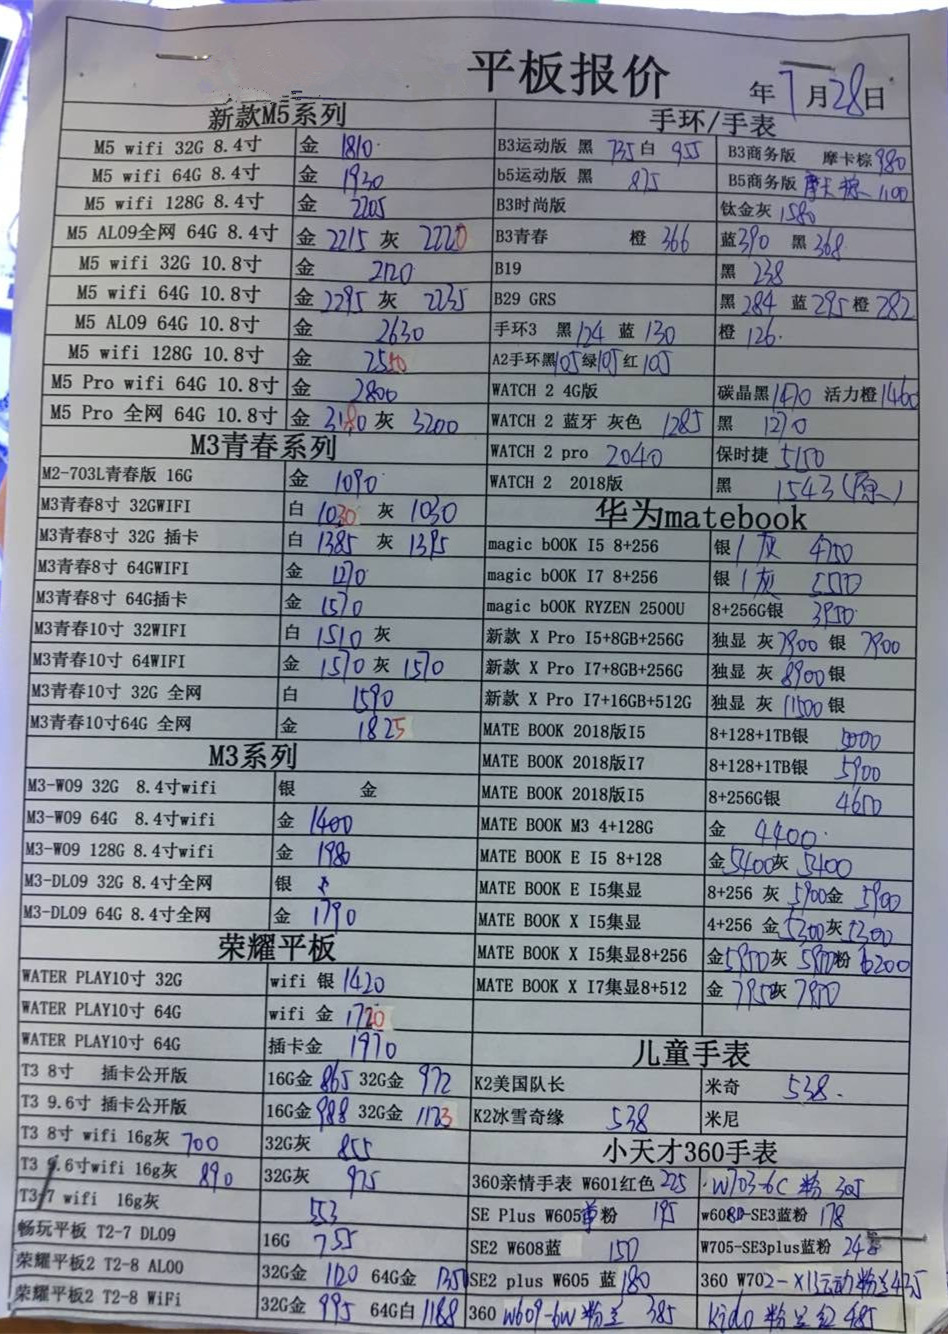 平板报价
年7月28日
新款M5系列
M5 wifi 32G 8.4寸 金 1810
M5 wifi 64G 8.4寸 金 1930
M5 wifi 128G 8.4寸 金 2205
M5 AL09全网 64G 8.4寸 金 2215 灰 2220
M5 wifi 32G 10.8寸 金 2120
M5 wifi 64G 10.8寸 金 2295 灰 2235
M5 AL09 64G 10.8寸 金 2630
M5 wifi 128G 10.8寸 金 2550
M5 Pro wifi 64G 10.8寸 金 2800
M5 Pro 全网 64G 10.8寸 金 3180 灰 3200
M3青春系列
M2-703L青春版 16G 金 1090
M3青春8寸 32GWIFI 白 1030 灰 1030
M3青春8寸 32G 插卡 白 1385 灰 1395
M3青春8寸 64GWIFI 金 1270
M3青春8寸 64G插卡 金 1570
M3青春10寸 32WIFI 白 1510 灰
M3青春10寸 64WIFI 金 1570 灰 1570
M3青春10寸 32G 全网 白 1590
M3青春10寸64G 全网 金 1825
M3系列
M3-W09 32G 8.4寸wifi 银 金
M3-W09 64G 8.4寸wifi 金 1400
M3-W09 128G 8.4寸wifi 金 1980
M3-DL09 32G 8.4寸全网 银
M3-DL09 64G 8.4寸全网 金 1790
荣耀平板
WATER PLAY10寸 32G wifi 银 1420
WATER PLAY10寸 64G wifi 金 1720
WATER PLAY10寸 64G 插卡金 1970
T3 8寸 插卡公开版 16G金 865 32G金 972
T3 9.6寸 插卡公开版 16G金 988 32G金 1123
T3 8寸 wifi 16g灰 700 32G灰 855
T3 9.6寸wifi 16g灰 890 32G灰 975
T3-7 wifi 16g灰 553
畅玩平板 T2-7 DL09 16G 755
荣耀平板2 T2-8 AL00 32G金 1120 64G金 1350
荣耀平板2 T2-8 WiFi 32G金 995 64G白 1188
手环/手表
B3运动版 黑 735 白 955 B3商务版 摩卡棕 980
b5运动版 黑 875 B5商务版 摩卡棕 1100
B3时尚版 钛金灰 1580
B3青春 橙 366 蓝390 黑 368
B19 黑 238
B29 GRS 黑 284 蓝 295 橙 282
手环3 黑 124 蓝 130 橙 126
A2手环黑105绿105红 105
WATCH 2 4G版 碳晶黑1470 活力橙1460
WATCH 2 蓝牙 灰色 1285 黑 1270
WATCH 2 pro 2040 保时捷 5150
WATCH 2 2018版 黑 1543(原)
华为matebook
magic bOOK I5 8+256 银/灰 4750
magic bOOK I7 8+256 银/灰 5550
magic bOOK RYZEN 2500U 8+256G银 3950
新款 X Pro I5+8GB+256G 独显 灰7900 银 7900
新款 X Pro I7+8GB+256G 独显 灰 8900银
新款 X Pro I7+16GB+512G 独显 灰 11500 银
MATE BOOK 2018版I5 8+128+1TB银 5000
MATE BOOK 2018版I7 8+128+1TB银 5900
MATE BOOK 2018版I5 8+256G银 4650
MATE BOOK M3 4+128G 金 4400
MATE BOOK E I5 8+128 金3400灰 3400
MATE BOOK E I5集显 8+256 灰 5900金 5900
MATE BOOK X I5集显 4+256 金5300灰5300
MATE BOOK X I5集显8+256 金5950灰 5950粉 6200
MATE BOOK X I7集显8+512 金 7950灰 7950
儿童手表
K2美国队长 米奇 538
K2冰雪奇缘 538 米尼
小天才360手表
360亲情手表 W601红色 225 W703-6C 粉 305
SE Plus W605 粉 195 w608D-SE3蓝粉 178
SE2 W608蓝 150 W705-SE3plus蓝粉 248
SE2 plus W605 蓝 180 360 W702-X1运动粉兰435
360 W609-6W 粉兰 385 Kido 粉兰红 485